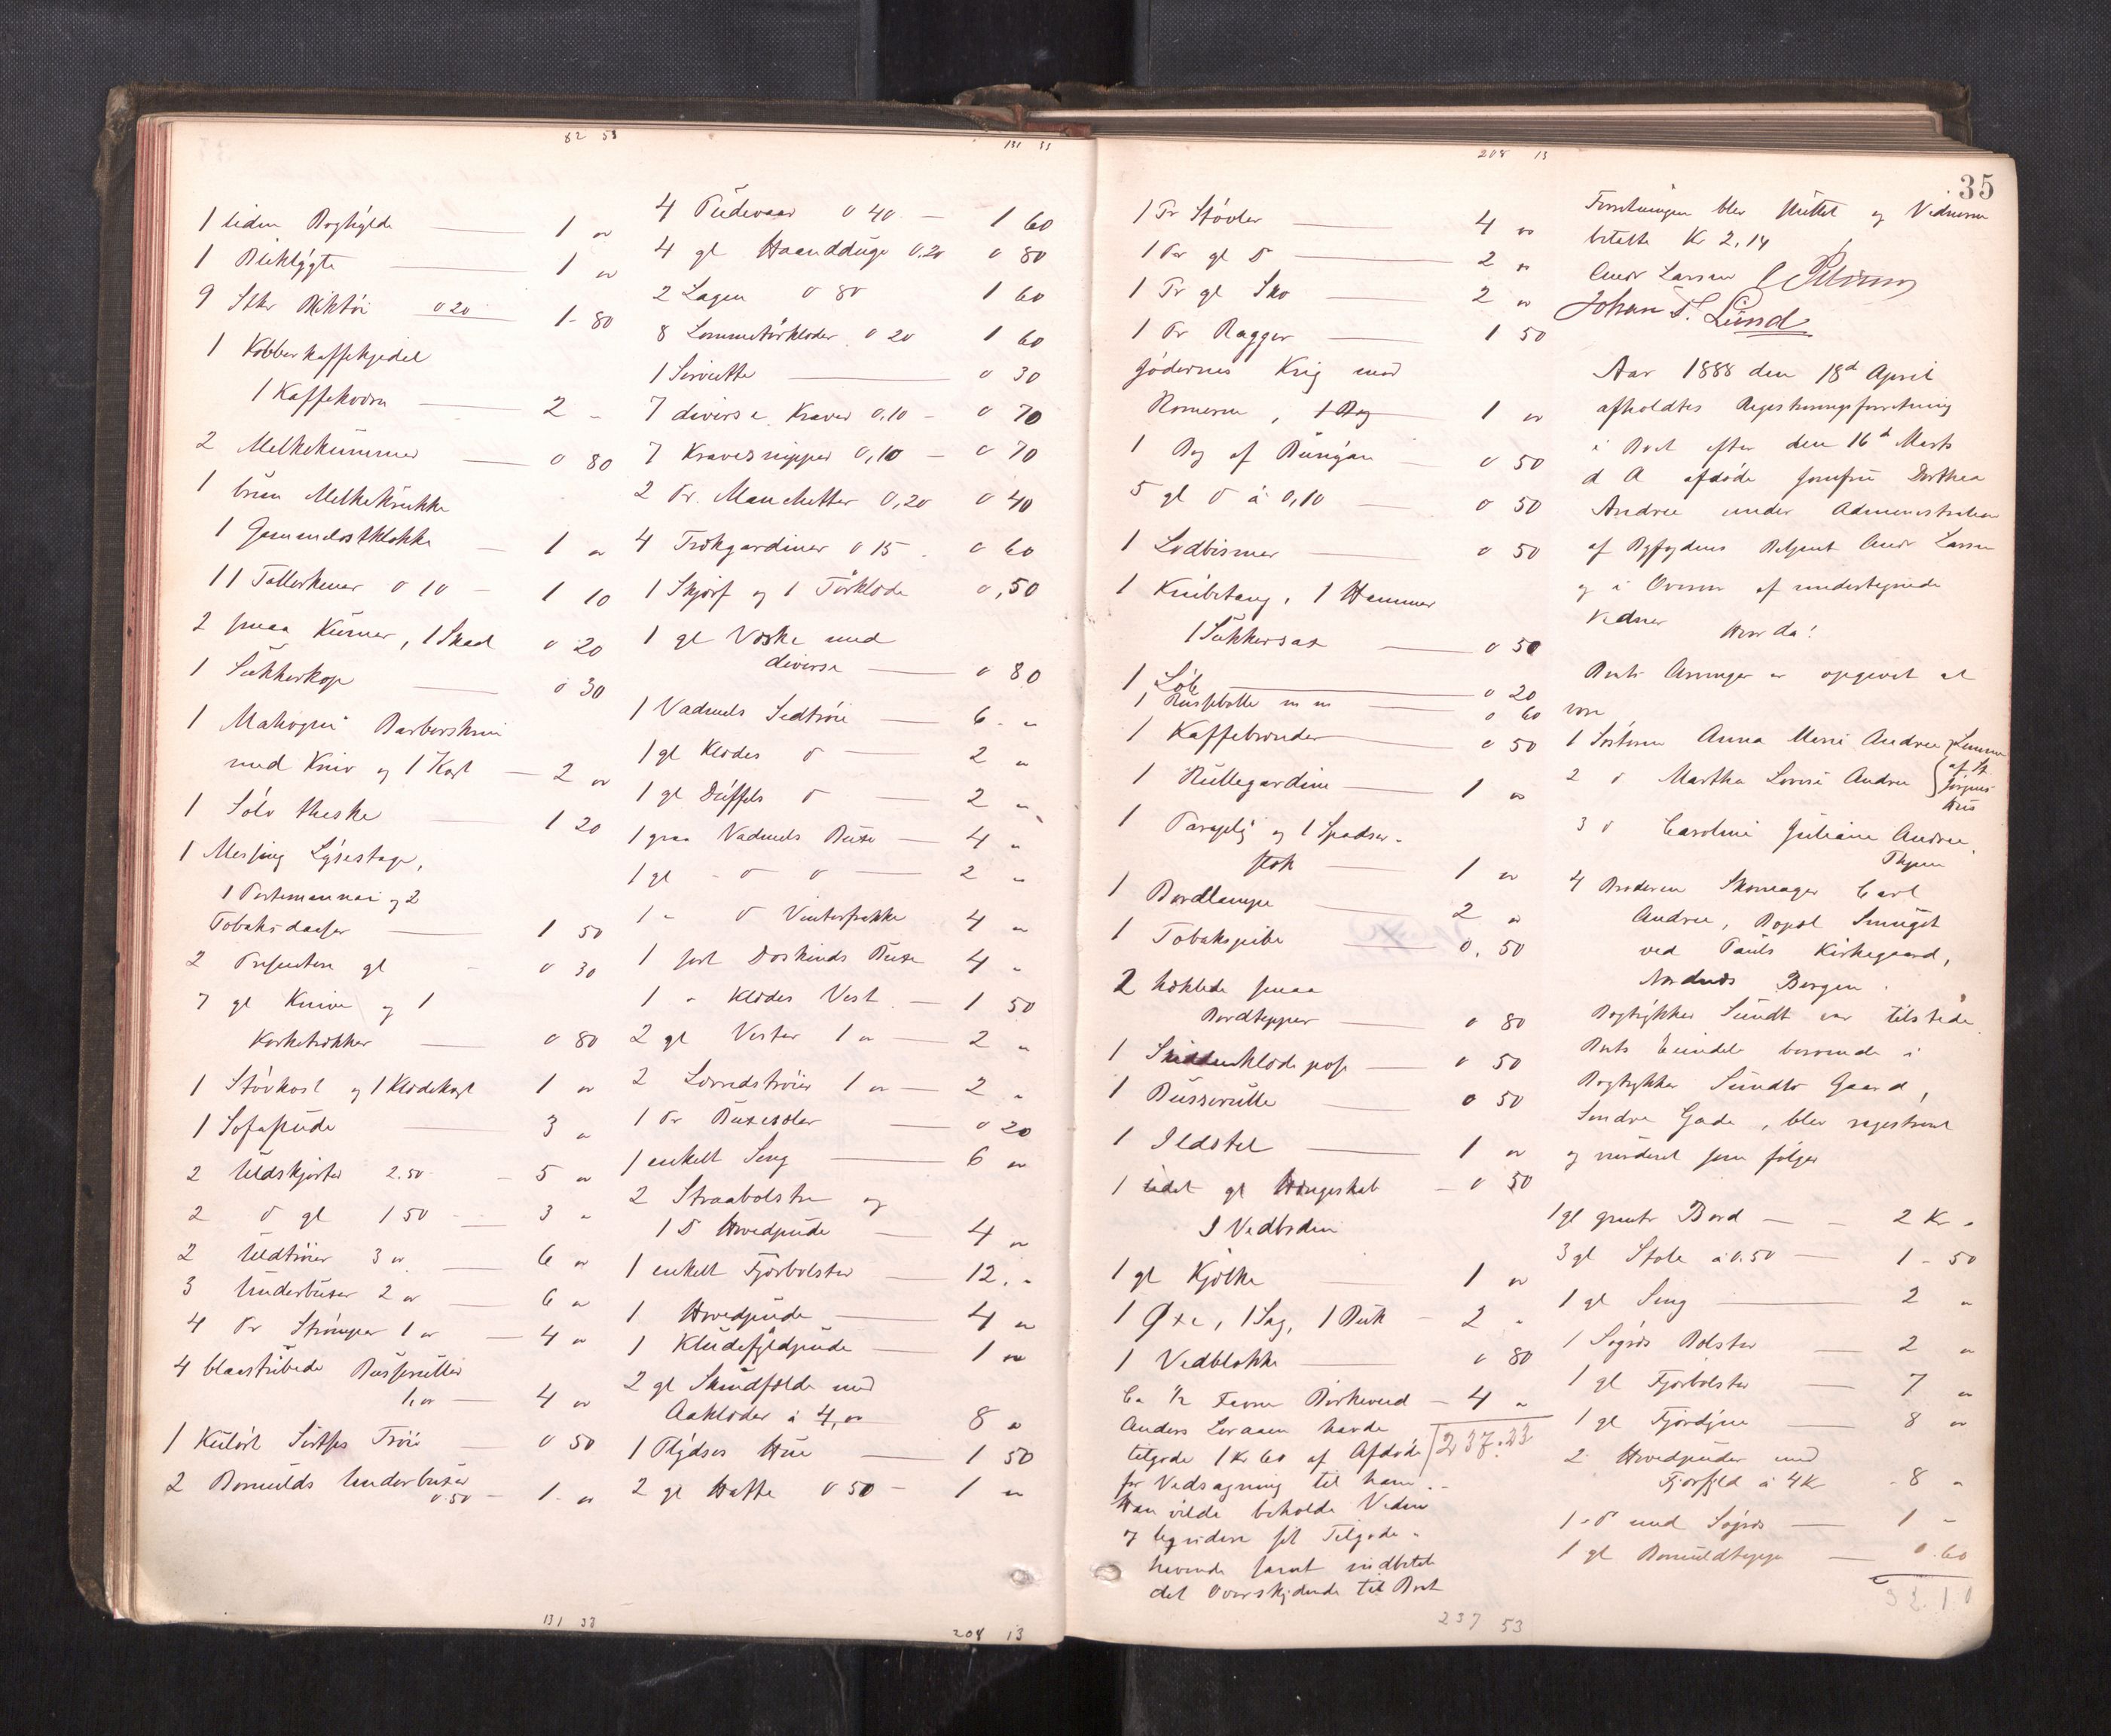 82 53
1 liden Boghylde — 1 "
1 Bliklygte — 1 "
9 Stkr Bliktøi 0 20 1 - 80
1 Kobberkaffekjedel
1 Kaffekværn — 2 "
2 Melkekummer — 0 80
1 brun Melkekrukke
1 Gammelostklokke — 1 "
11 Tallerkener 0 10 — 1 10
2 smaa Kummer, 1 Skaal 0 20
1 Sukkerkop — 0 30
1 Mahogni Barberskrin
med Kniv og 1 Kost — 2 "
1 Sølv theske — 1 20
1 Messing Lysestage,
1 Portemonnai og 2
Tobaksdaaser — 1 50
2 Presenter gl - 0 30
7 gl Knive og 1
Korketrækker — 0 80
1 Støvkost og 1 Klædekost 1 "
1 Sofapude — 3 "
2 Uldskjorter 2.50 - 5 "
2 d gl 1 50 — 3 "
2 Uldtrøier 3 " — 6 "
3 Underbuxer 2 " — 6 "
4 Pr Strømper 1 " — 4 "
4 blaastribede Busseruller
1, " — 4 "
1 Kulørt Trøie — 0 50
2 Bomulds Underbuxer
0.50 — 1 - "
131 33
131 33
4 Pudevaar 0 40 — 1 60
4 gl Haandduge 0,20 0 80
2 Lagen 0 80 1 60
8 Lommetørklæder 0 20 1 60
1 Serviette — 0 30
7 diverse Kraver 0,10 — 0 70
7 Kravesnipper 0,10 — 0 70
2 Pr. Manchetter 0,20 0 40
4 Trækgardiner 0 15 . 0 60
1 Skjærf og 1 Tørklæde 0,50
1 gl Væske med
diverse — 0 80
1 Vadmels Sedtrøie — 6 - "
1 gl Klædes d — 2 "
1 gl Duffels d — 2 "
1 graa Vadmels Buxe — 4 "
1 gl - d d — 2 "
1 " d Vinterfrakke 4 "
1 sort Doskinds Buxe 4 "
1 " Klædes Vest — 1 50
2 gl Vester 1 " — 2 "
2 Lærredstrøier 1 " — 2 "
1 Pr Buxeseler — 0 20
1 enkelt Seng — 6 "
2 Straabolstre og
1 d Hovedpude — 4 "
1 enkelt Fjørbolster — 12, "
1 Hovedpude — 4 "
1 Kludefyldpude — 1 "
2 gl Skindfælde med
Aaklæder à 4, " 8 "
1 Plydses Hue — 1 50
2 gl Hatte 0 50 — 1 "
208 13
208 13
1 Pr Støvler — 4 "
1 Par gl d — 2 "
1 Pr gl Sko — 2 "
1 Pr Ragger — 1 50
Jødernes Krig mod
Romerne, 1 Bog 1 "
1 Bog af Bunyan — 0 50
5 gl d à 0,10 — 0 50
1 Lodbismer — 0 50
1 Knibetang, 1 Hammer
1 Sukkersax — 0 50
1 Løb — 0 20
1 Russebolle m m — 0 60
1 Kaffebrænder — 0 50
1 Rullegardin — 1 "
1 Paraply og 1 Spadser-
stok — 1 "
1 Bordlampe — 2 "
1 Tobakspibe — 0, 50
2 hæklede smaa
Bordtepper — 0 80
1 pose — 0 50
1 Busserulle — 0 50
1 Ildstel — 1 "
1 lidet gl Hængeskab — 0 50
1 Vedbøden
1 gl Kjølke — 1 "
1 Øxe, 1 Sag, 1 Buk — 2 "
1 Vedblokke — 0 80
Ca ½ Favne Birkeved — 4 "
Anders Loraasen havde
tilgode 1 Kr 60 af Afdøde 237.23
for Vedsagning til ham.
Han vilde beholde Veden
sit Tilgode-
havende samt indbetale
det Overskydende til Boet
237 53
35
Forretningen blev sluttet og Vidnerne
betalte Kr 2,14
Andr Larsen Petersen
Johan T. Lund
Aar 1888 den 18de April
afholdtes Registreringsforretning
i Boet efter den 16de Marts
d A afdøde Jomfru Dorthea
Andree under Administration
af Byfogdens Betjent Andr Larsen
og i Overvær af undertegnede
Vidner Hvor da!
Boets Arvinger er opgivet at
være
1 Søsteren Anna Marie Andree } Lemmer
2 d Martha Lovise Andree } af St. Jørgens Hus
3 d Caroline Juliane Andree,
4 Broderen Skomager Carl
Andree, Bopæl Smuget
ved Pauls Kirkegaard,
Nordnæs Bergen.
Bogtrykker Sundt var tilstede
Boets Eiendele beroende i
Bogtrykker Sundts Gaard,
Søndre Gade, blev registreret
og vurderet som følger
1 gl Bord — - 2 Kr "
3 gl Stole à 0.50 — 1 - 50
1 gl Seng — 2 "
1 Søgræs Bolster — 2 "
1 gl Fjærbolster — 7 "
1 gl Fjærdyne — 8 "
2 Hovedpuder med
Fjærfyld à 4 Kr - 8 "
1 - d med Søgræs — 1 -
1 gl Bomuldteppe — 0.60
32.10